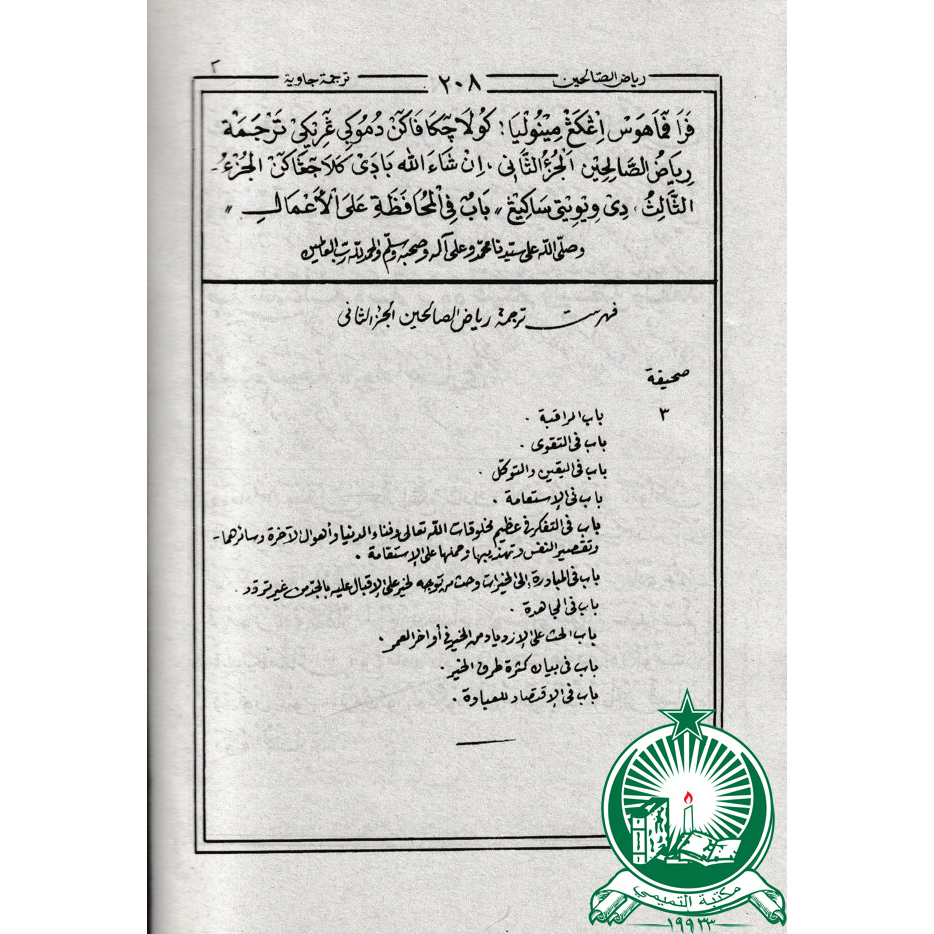 ٢
رياض الصّالحين ٢٠٨ ترجمة جاوية
فَرَا فَمَاهَوْسْ اِڠْكَڠْ مِيْنُولْيَا؛ كَوُلَا چُكَافَاكَنْ دُمُوكِي ڠَرِيكِيْ تَرْجَمَةْ
رِيَاضُ الصَّالِحِيْن اَلْجُزْءُ الثَّانِي. اِنْ شَاءَ الله بَادَىْ كُلَا جَڠْاكَنْ الْجُزْءُ-
الثَّالِثُ، دِىْ وِيْوِيْتِيْ سَاكِيْڠْ «بَابٌ فِي الْمُحَافَظَةِ عَلَى الْأَعْمَالِ»
وصلّى الله على سيّدنا محمّد وعلى آله وصحبه وسلّم والحمد للّه ربّ العالمين
فهرست ترجمة رياض الصالحين الجزء الثانى
صحيفة
٣ باب المراقبة .
باب فى التقوى .
باب فى اليقين والتوكّل .
باب فى الإستقامة .
باب فى التفكر فى عظيم مخلوقات الله تعالى وفناء الدنيا وأهوال الآخرة وسائرهما-
وتقصير النفس وتهذيبها وحملها على الإستقامة .
باب فى المبادرة إلى الخيرات وحث من توجه لخير على الإقبال عليه بالجدّ من غير تردّد .
باب فى المجاهدة .
باب الحث على الإزدياد من الخير فى أواخر العمر .
باب فى بيان كثرة طرق الخير .
باب فى الإقتصاد للعبادة .
مكتبة التميمي
١٩٩٣٣